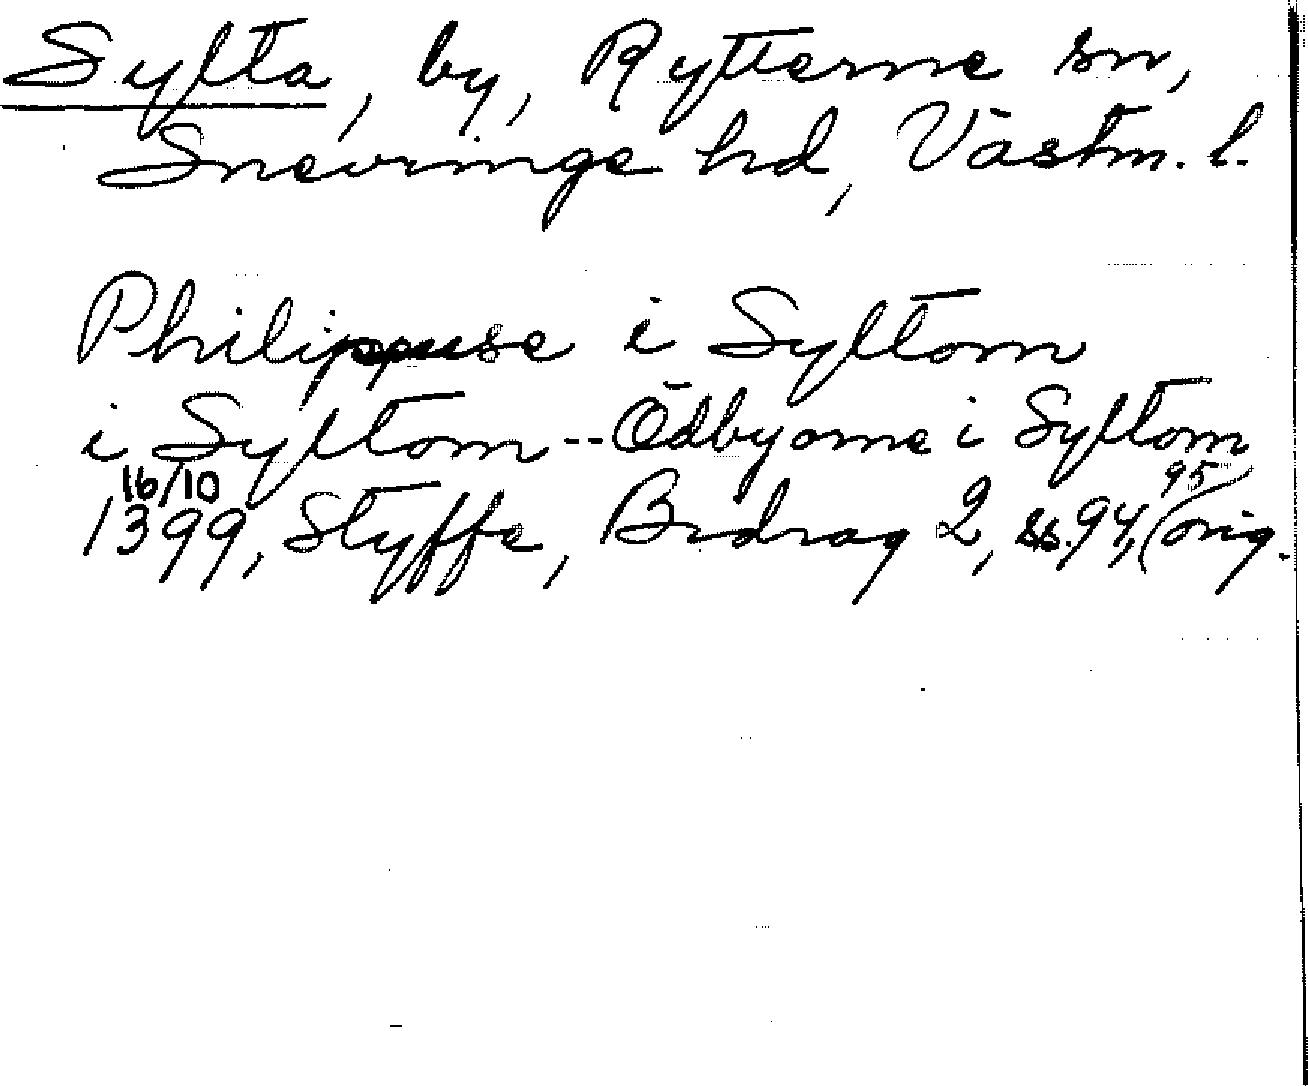 Sylta, by, Rytterne sn,
Snevringe hd, Västm. l.
Philippuse i Syltom
i Syltom -- Ödbyorne i Syltom
16/10 95
1399, Styffe, Bidrag 2, ss. 94, (orig.